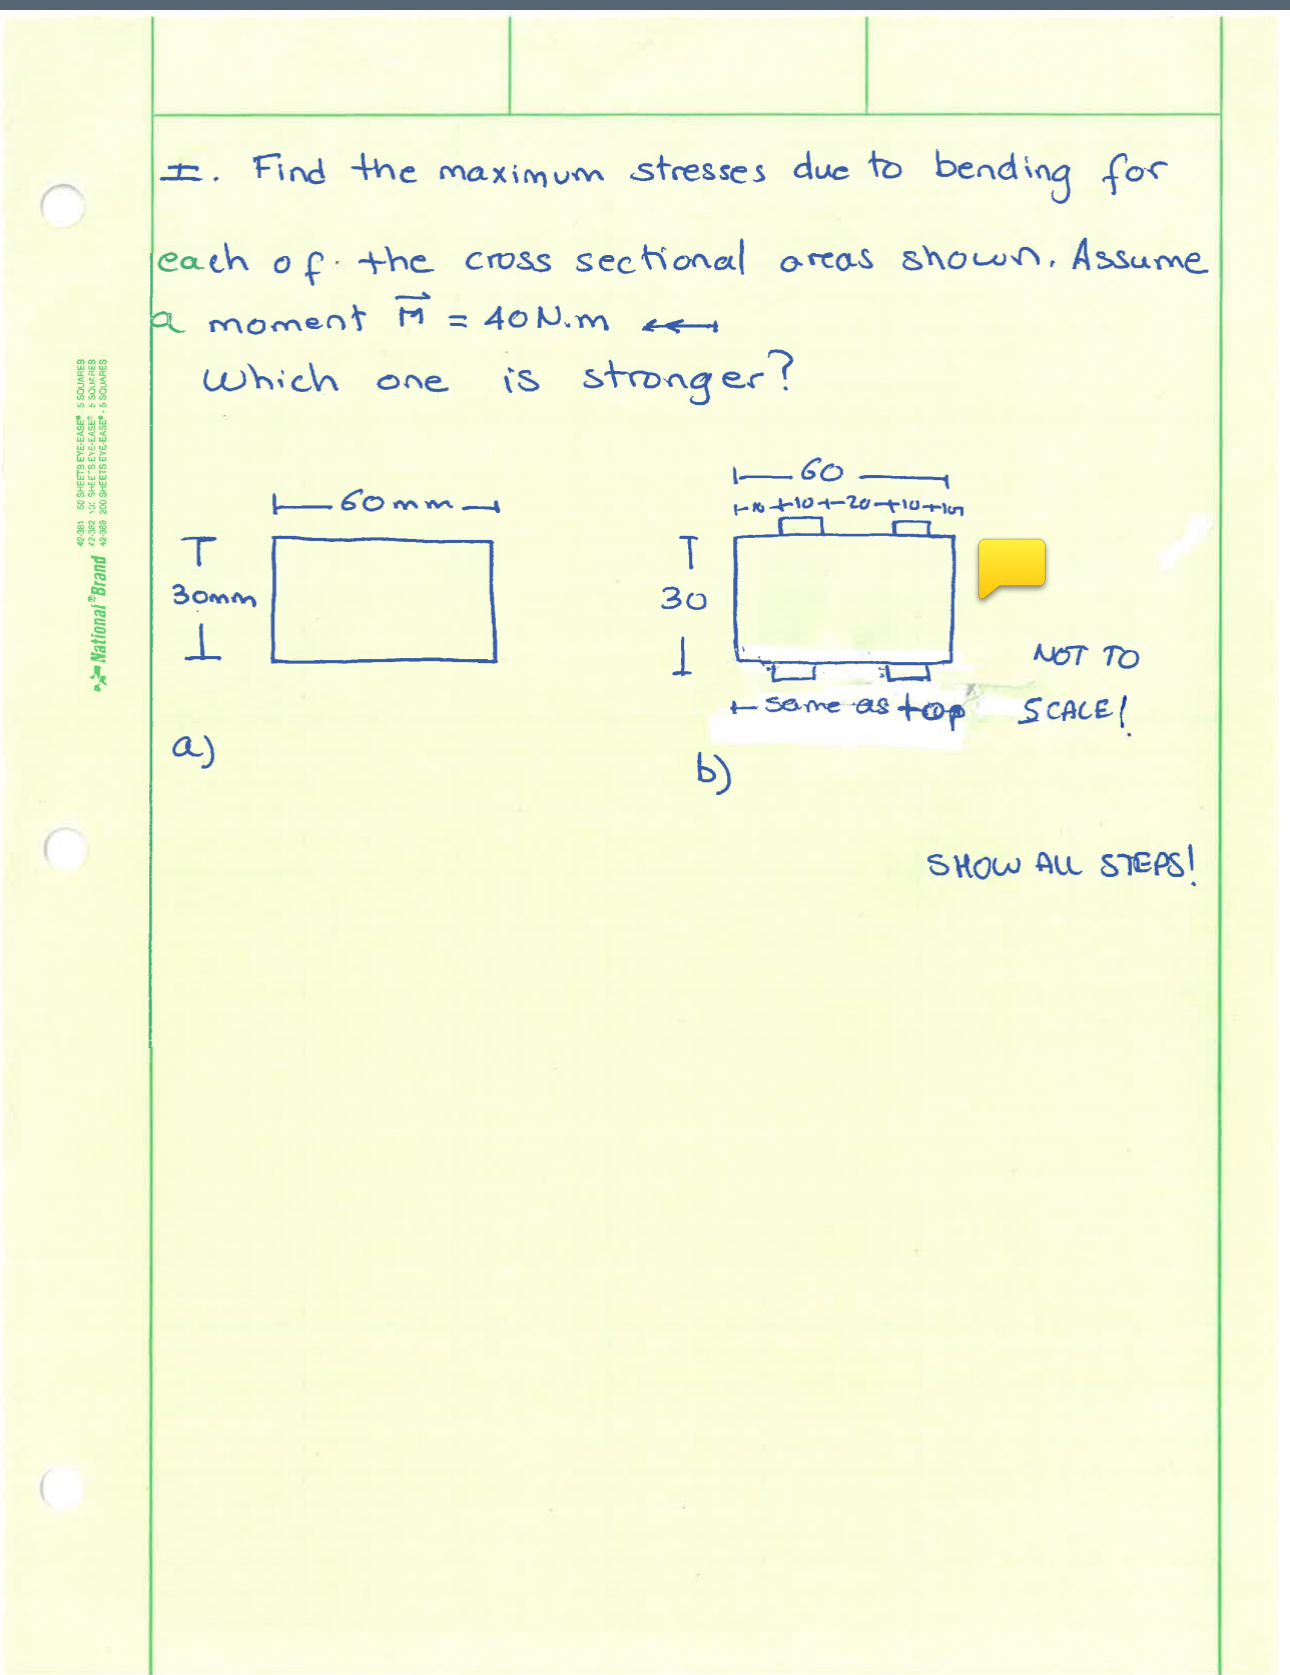 I. Find the maximum stresses due to bending for
each of the cross sectional areas shown. Assume
a moment M = 40 N.m
Which one is stronger?
60mm
30mm
a)
60
10 10 20 10 10
30
same as top
b)
NOT TO
SCALE!
SHOW ALL STEPS!
42-381 50 SHEETS EYE-EASE® 5 SQUARES
42-382 100 SHEETS EYE-EASE® 5 SQUARES
42-389 200 SHEETS EYE-EASE® 5 SQUARES
National® Brand